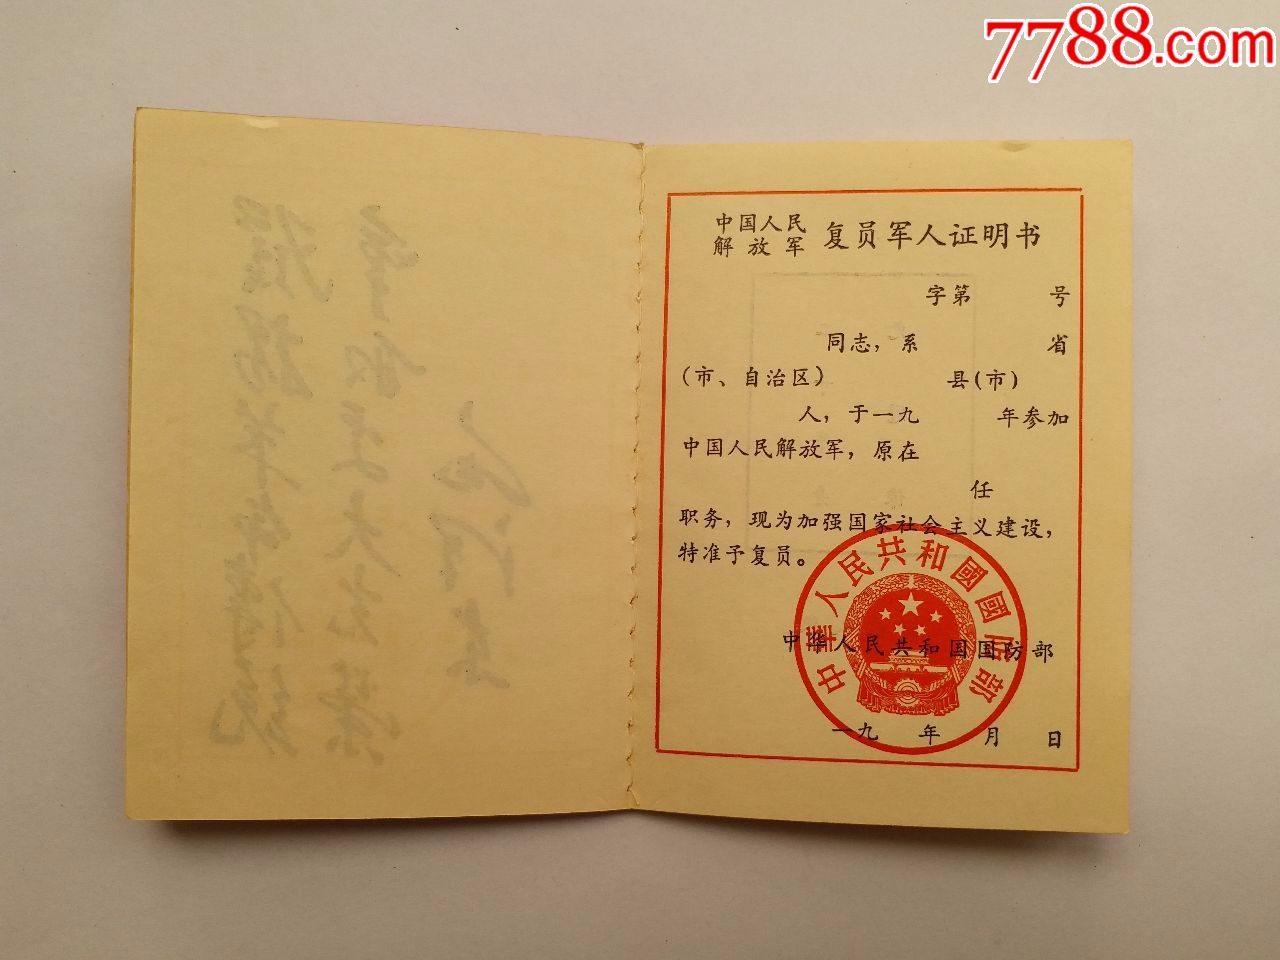 7788.com
中国人民
解放军
复员军人证明书
字第 号
同志，系 省
(市、自治区) 县(市)
人，于一九 年参加
中国人民解放军，原在
任
职务，现为加强国家社会主义建设，
特准予复员。
中華人民共和國國防部
中华人民共和国国防部
一九 年 月 日